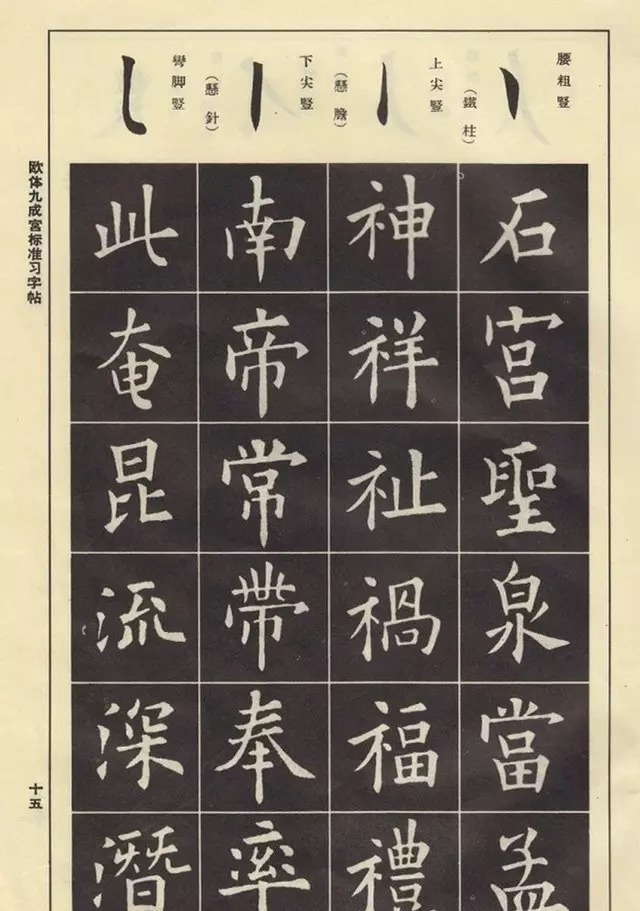 腰粗豎
(鐵柱)
上尖豎
(懸膽)
下尖豎
(懸針)
彎脚豎
石宮聖泉當孟
神祥祉禍福禮
南帝常帶奉率
此奄昆流深潛
欧体九成宫标准习字帖
十五